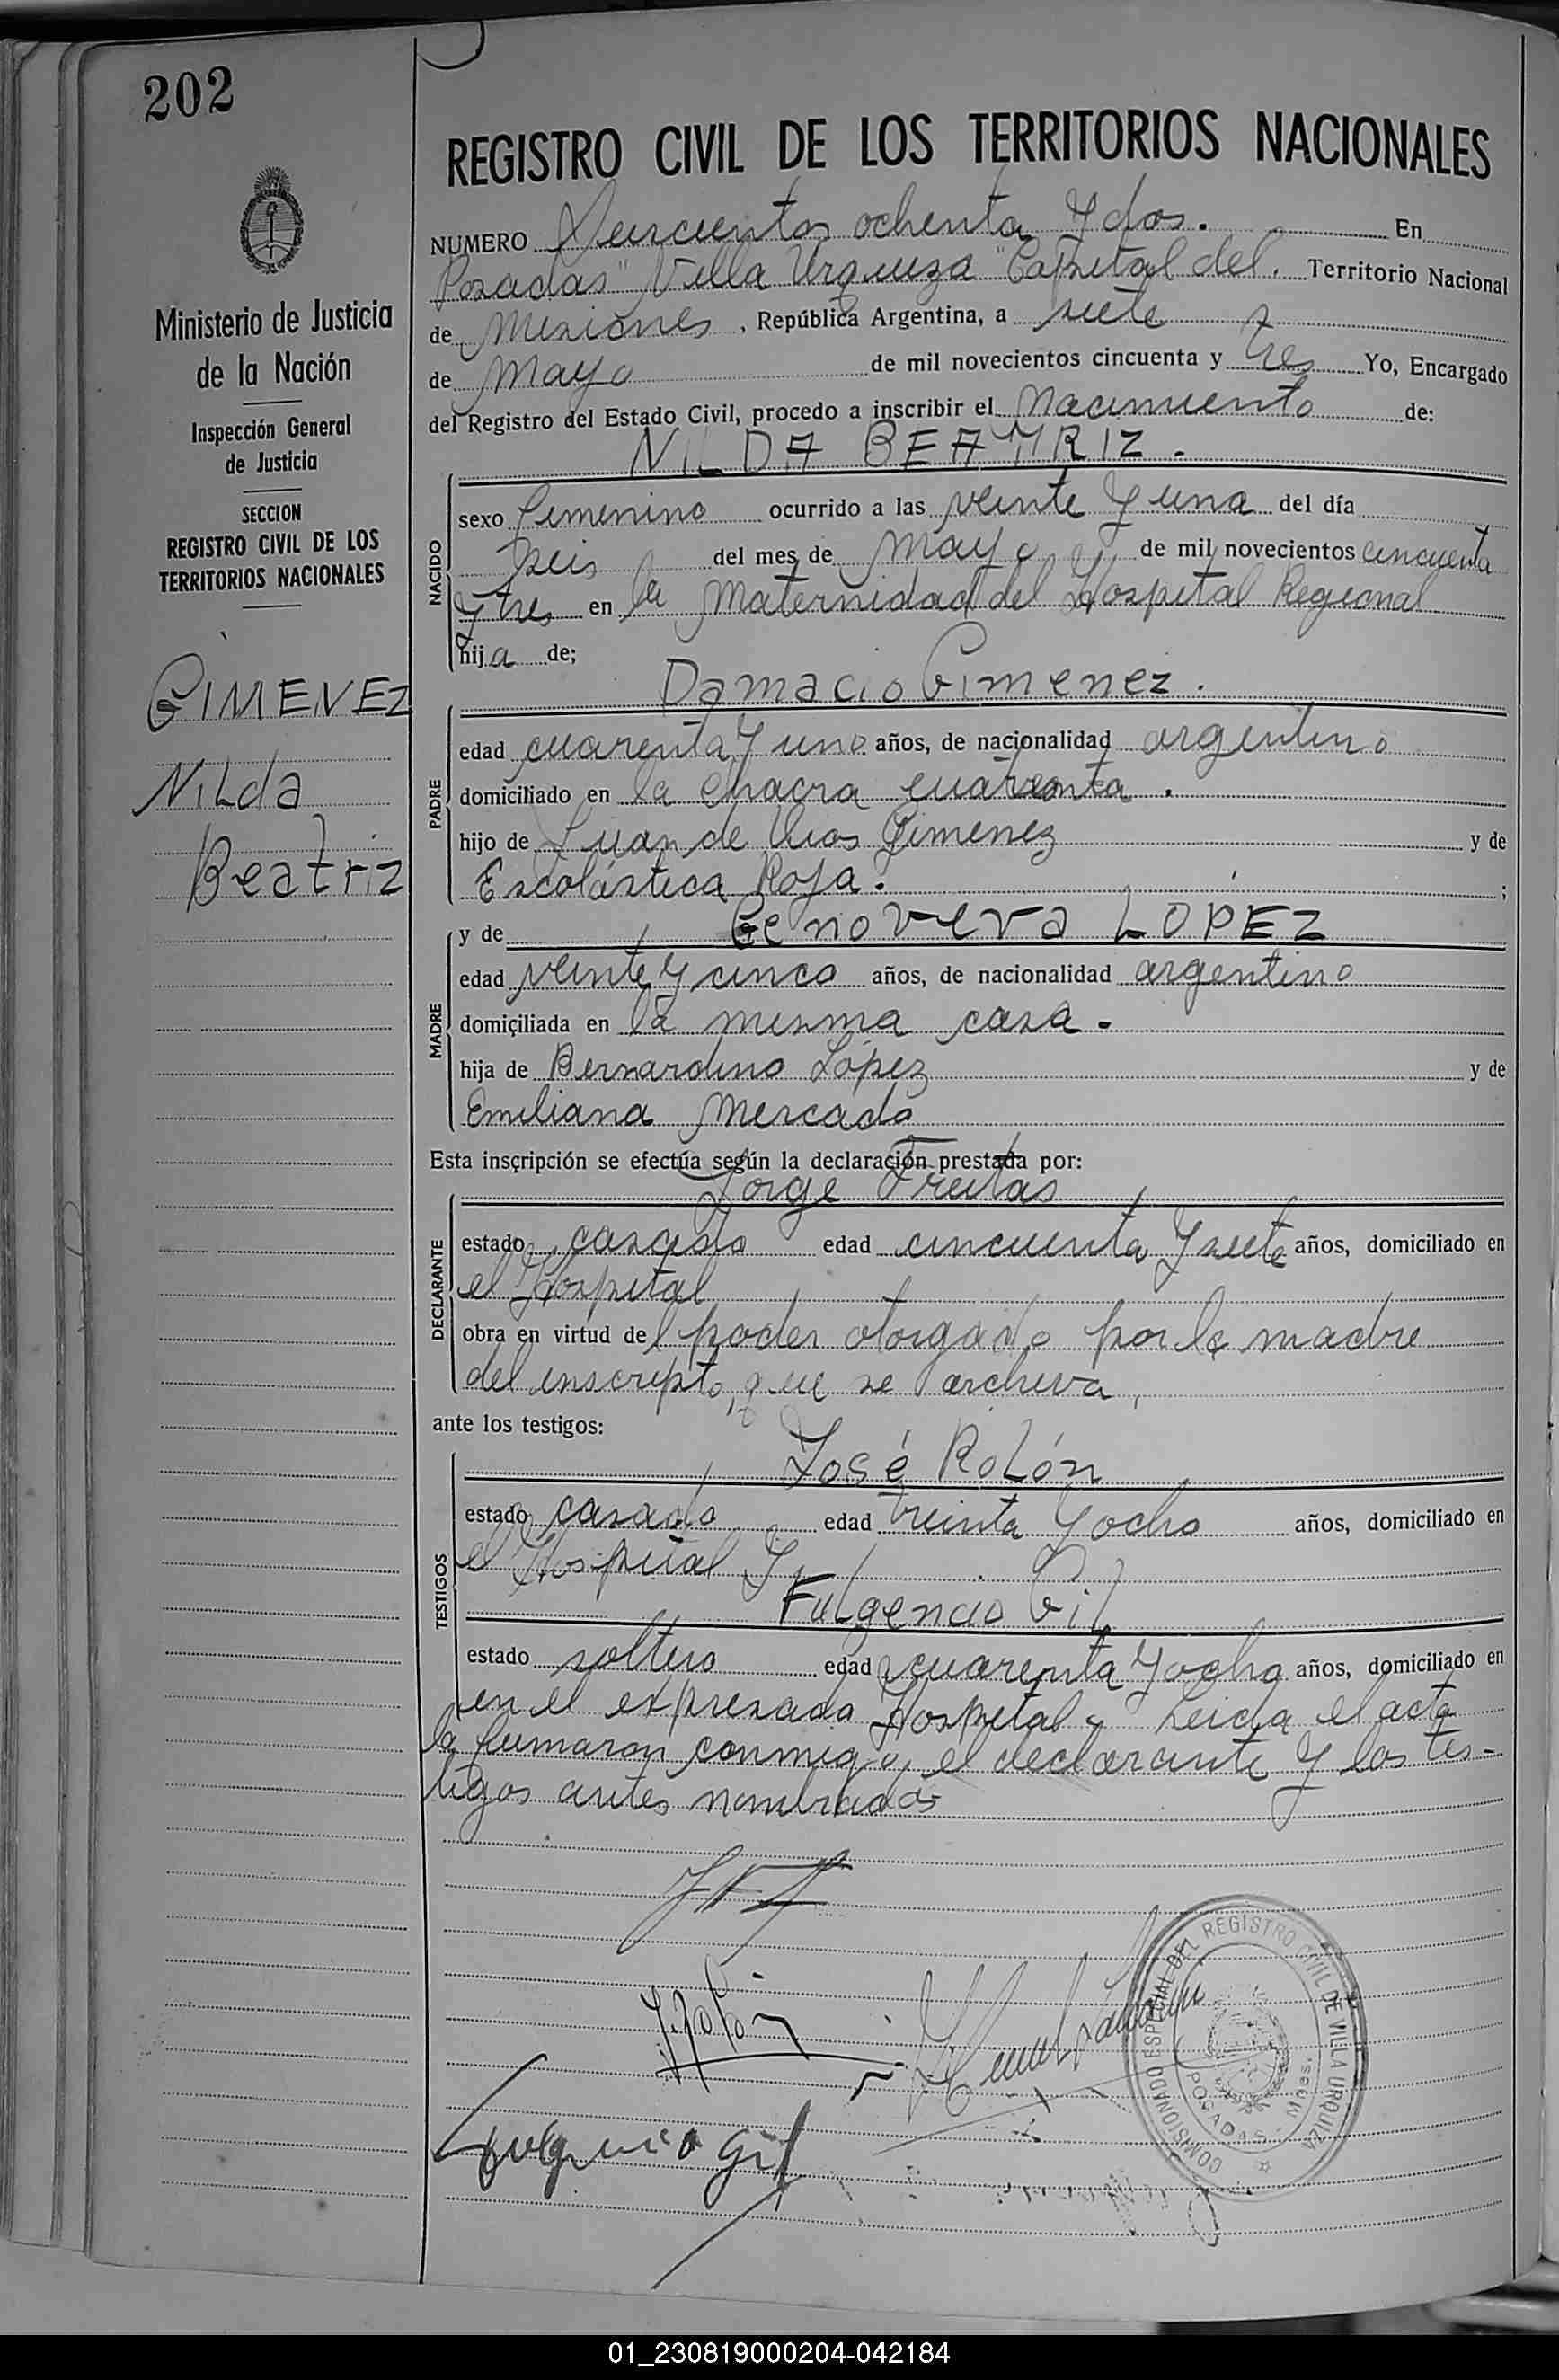 202
REGISTRO CIVIL DE LOS TERRITORIOS NACIONALES
NUMERO ochenta y dos. En
Posadas "Villa Urquiza" Capital del. Territorio Nacional
de Misiones, República Argentina, a siete
de Mayo de mil novecientos cincuenta y tres Yo, Encargado
del Registro del Estado Civil, procedo a inscribir el Nacimiento de:
NILDA BEATRIZ.
Ministerio de Justicia
de la Nación
Inspección General
de Justicia
SECCION
REGISTRO CIVIL DE LOS
TERRITORIOS NACIONALES
GIMENEZ
NILda
Beatriz
NACIDO
sexo femenino ocurrido a las veinte y una del día
seis del mes de mayo de mil novecientos cincuenta
y tres en la Maternidad del Hospital Regional
hija de;
Damacio Gimenez.
PADRE
edad cuarenta y uno años, de nacionalidad argentino
domiciliado en la chacra cuarenta.
hijo de Juan de Dios Gimenez y de
Escolástica Roja. ;
y de Genoveva LOPEZ
MADRE
edad veinte y cinco años, de nacionalidad argentino
domiciliada en la misma casa.
hija de Bernardino López y de
Emiliana Mercado
Esta inscripción se efectúa según la declaración prestada por:
Jorge Freitas
DECLARANTE
estado casado edad cincuenta y siete años, domiciliado en
el Hospital
obra en virtud del poder otorgado por la madre
del inscripto, que se archiva,
ante los testigos:
José Rolón
TESTIGOS
estado casado edad treinta y ocho años, domiciliado en
el Hospital y
Fulgencio Gil
estado soltero edad cuarenta y ocho años, domiciliado en
en el expresado Hospital. Leida el acta
la firmaron conmigo, el declarante y los tes-
tigos antes nombrados
J. Rolón
Fulgencio Gil
COMISIONADO ESPECIAL DEL REGISTRO CIVIL DE VILLA URQUIZA
POSADAS - Mnes.
01_230819000204-042184